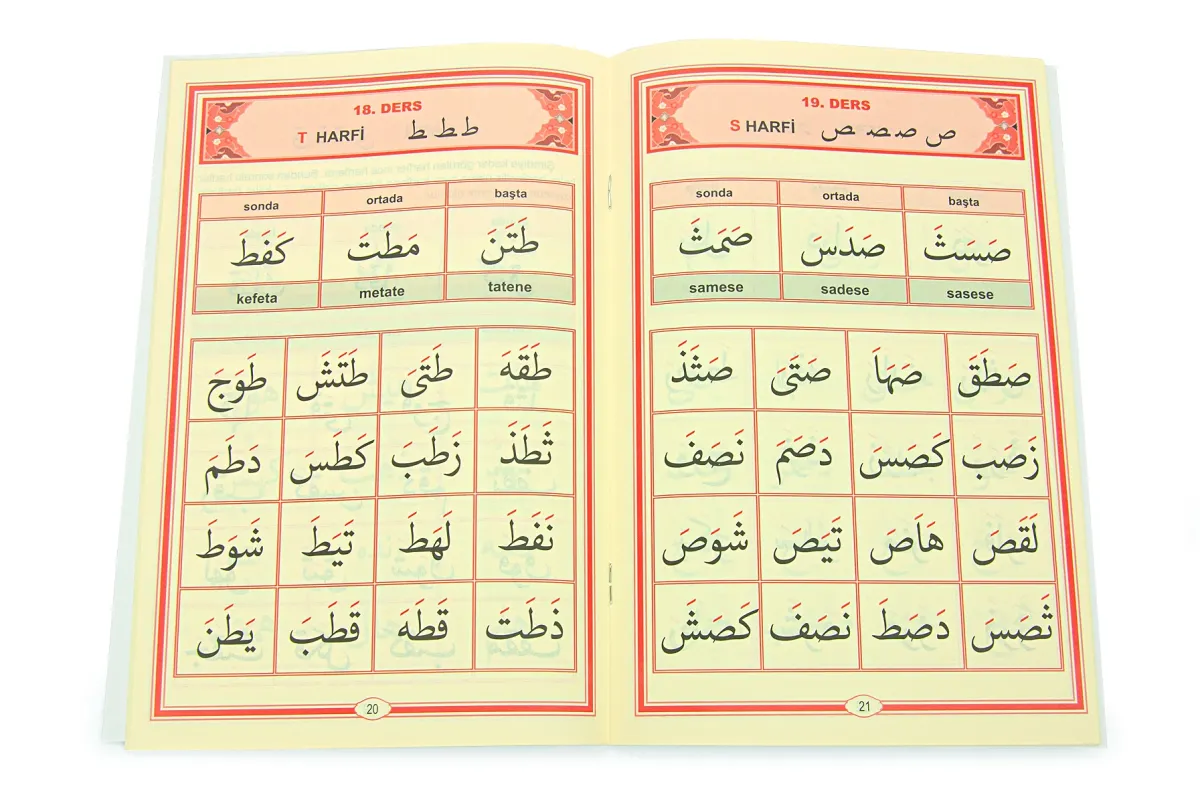 18. DERS
T HARFİ ط ط ط
başta ortada sonda
طَتَنَ مَطَتَ كَفَطَ
tatene metate kefeta
طَقَهَ طَتَىَ طَتَشَ طَوَجَ
تَطَذَ زَطَبَ كَطَسَ دَطَمَ
نَفَطَ لَهَطَ تَيَطَ شَوَطَ
ذَطَتَ قَطَهَ قَطَبَ يَطَنَ
20
19. DERS
S HARFİ ص ﺻ ﺼ ﺺ
başta ortada sonda
صَسَثَ صَدَسَ صَمَثَ
sasese sadese samese
صَطَقَ صَهَاَ صَتَىَ صَثَذَ
زَصَبَ كَصَسَ دَصَمَ نَصَفَ
لَقَصَ هَاَصَ تَيَصَ شَوَصَ
ثَصَسَ دَصَطَ نَصَفَ كَصَشَ
21